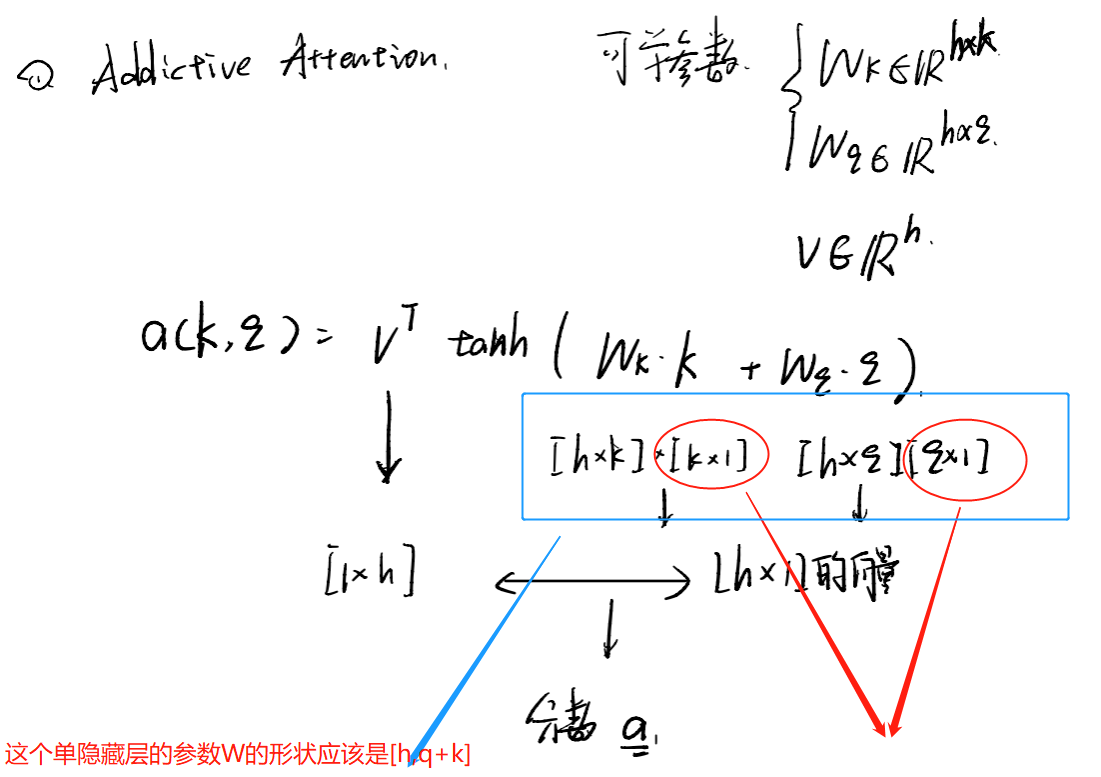 ① Addictive Attention.
可学参数. { Wk∈ℝ^{h×k}
Wq∈ℝ^{h×q}.
V∈ℝ^{h}.
a(k,q) = V^T tanh ( Wk·k + Wq·q ).
[h×k]·[k×1] [h×q][q×1]
[1×h] [h×1]的向量
分数 a.
这个单隐藏层的参数W的形状应该是[h,q+k]